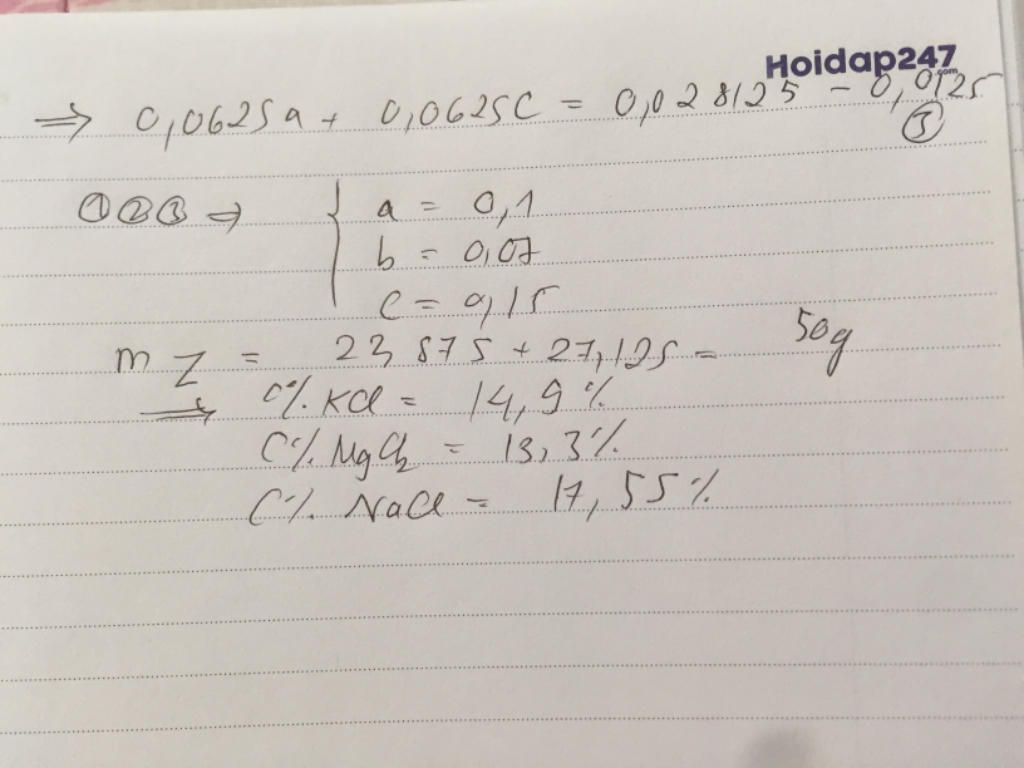 Hoidap247
.com
⇒ 0,0625a + 0,0625C = 0,028125 - 0,0125
③
①②③ ⇒ { a = 0,1
b = 0,07
C = 0,15
m Z = 23,875 + 27,125 = 50g
⇒ C% KCl = 14,9%
C% MgCl2 = 13,3%
C% NaCl = 17,55%